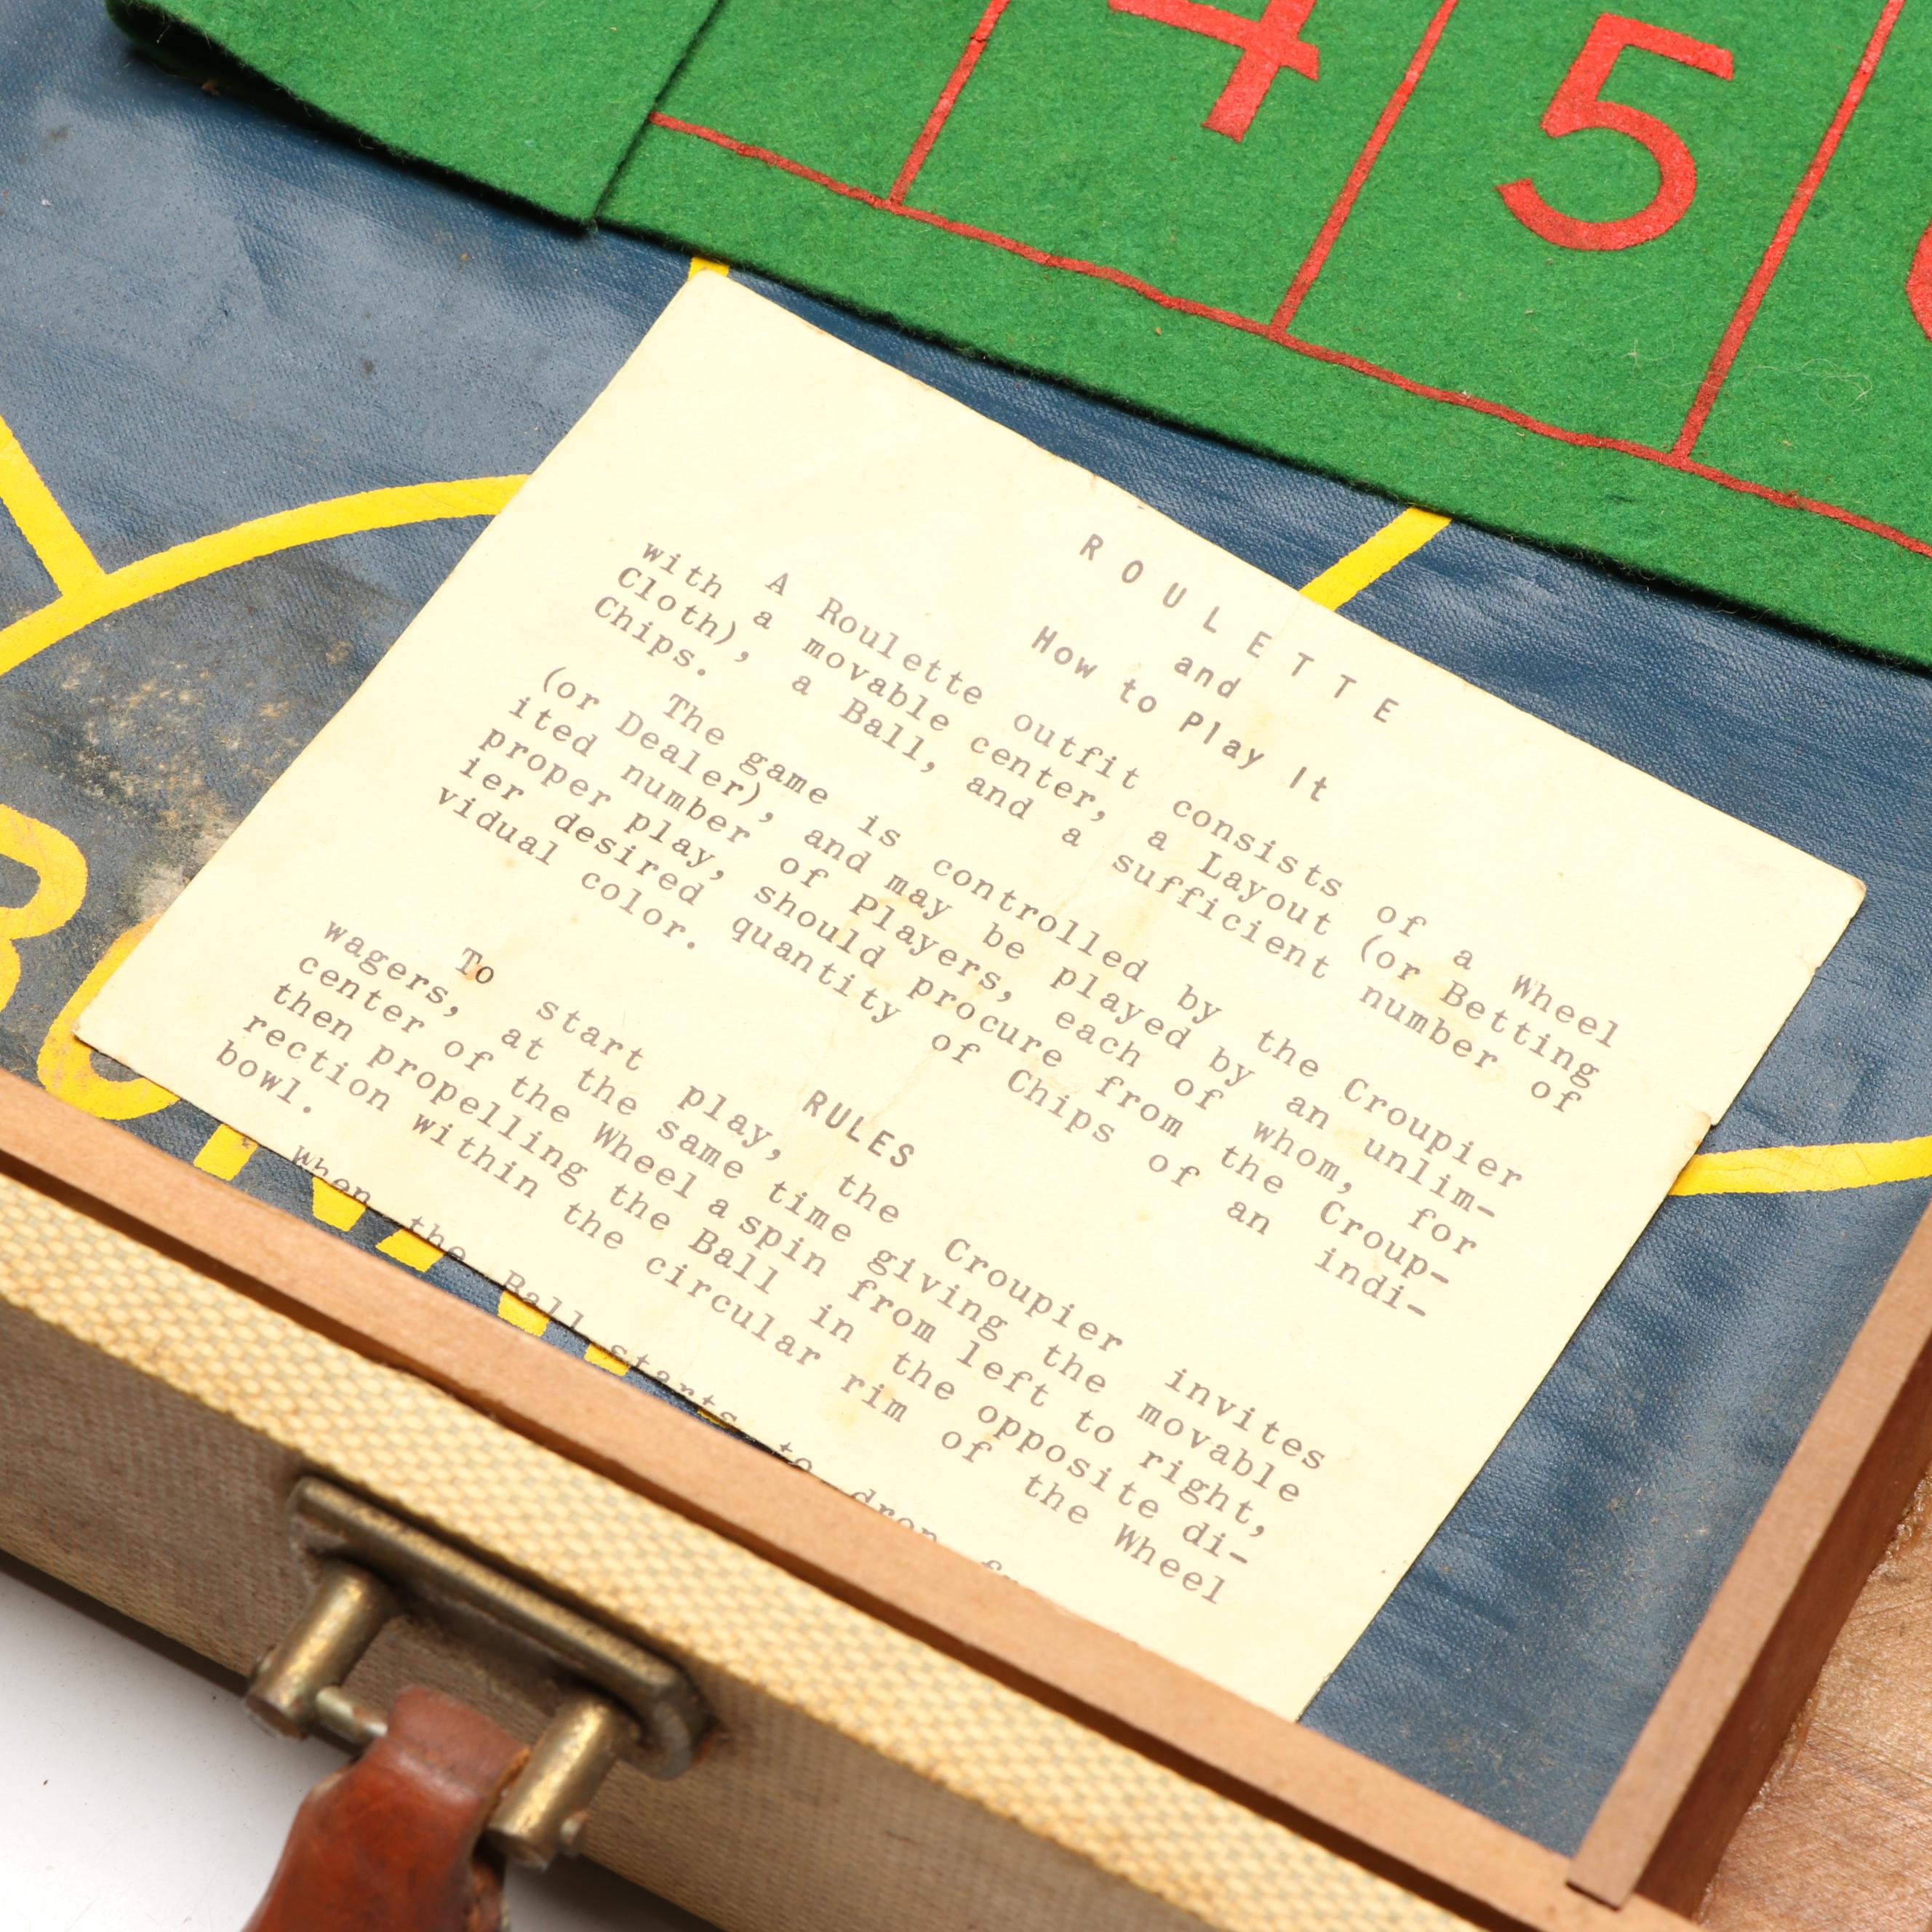 4 5
ROULETTE
and
How to Play It
A Roulette outfit consists of a Wheel
with a movable center, a Layout (or Betting
Cloth), a Ball, and a sufficient number of
Chips.
The game is controlled by the Croupier
(or Dealer), and may be played by an unlim-
ited number of Players, each of whom, for
proper play, should procure from the Croup-
ier desired quantity of Chips of an indi-
vidual color.
RULES
To start play, the Croupier invites
wagers, at the same time giving the movable
center of the Wheel a spin from left to right,
then propelling the Ball in the opposite di-
rection within the circular rim of the Wheel
bowl.
When the Ball starts to drop